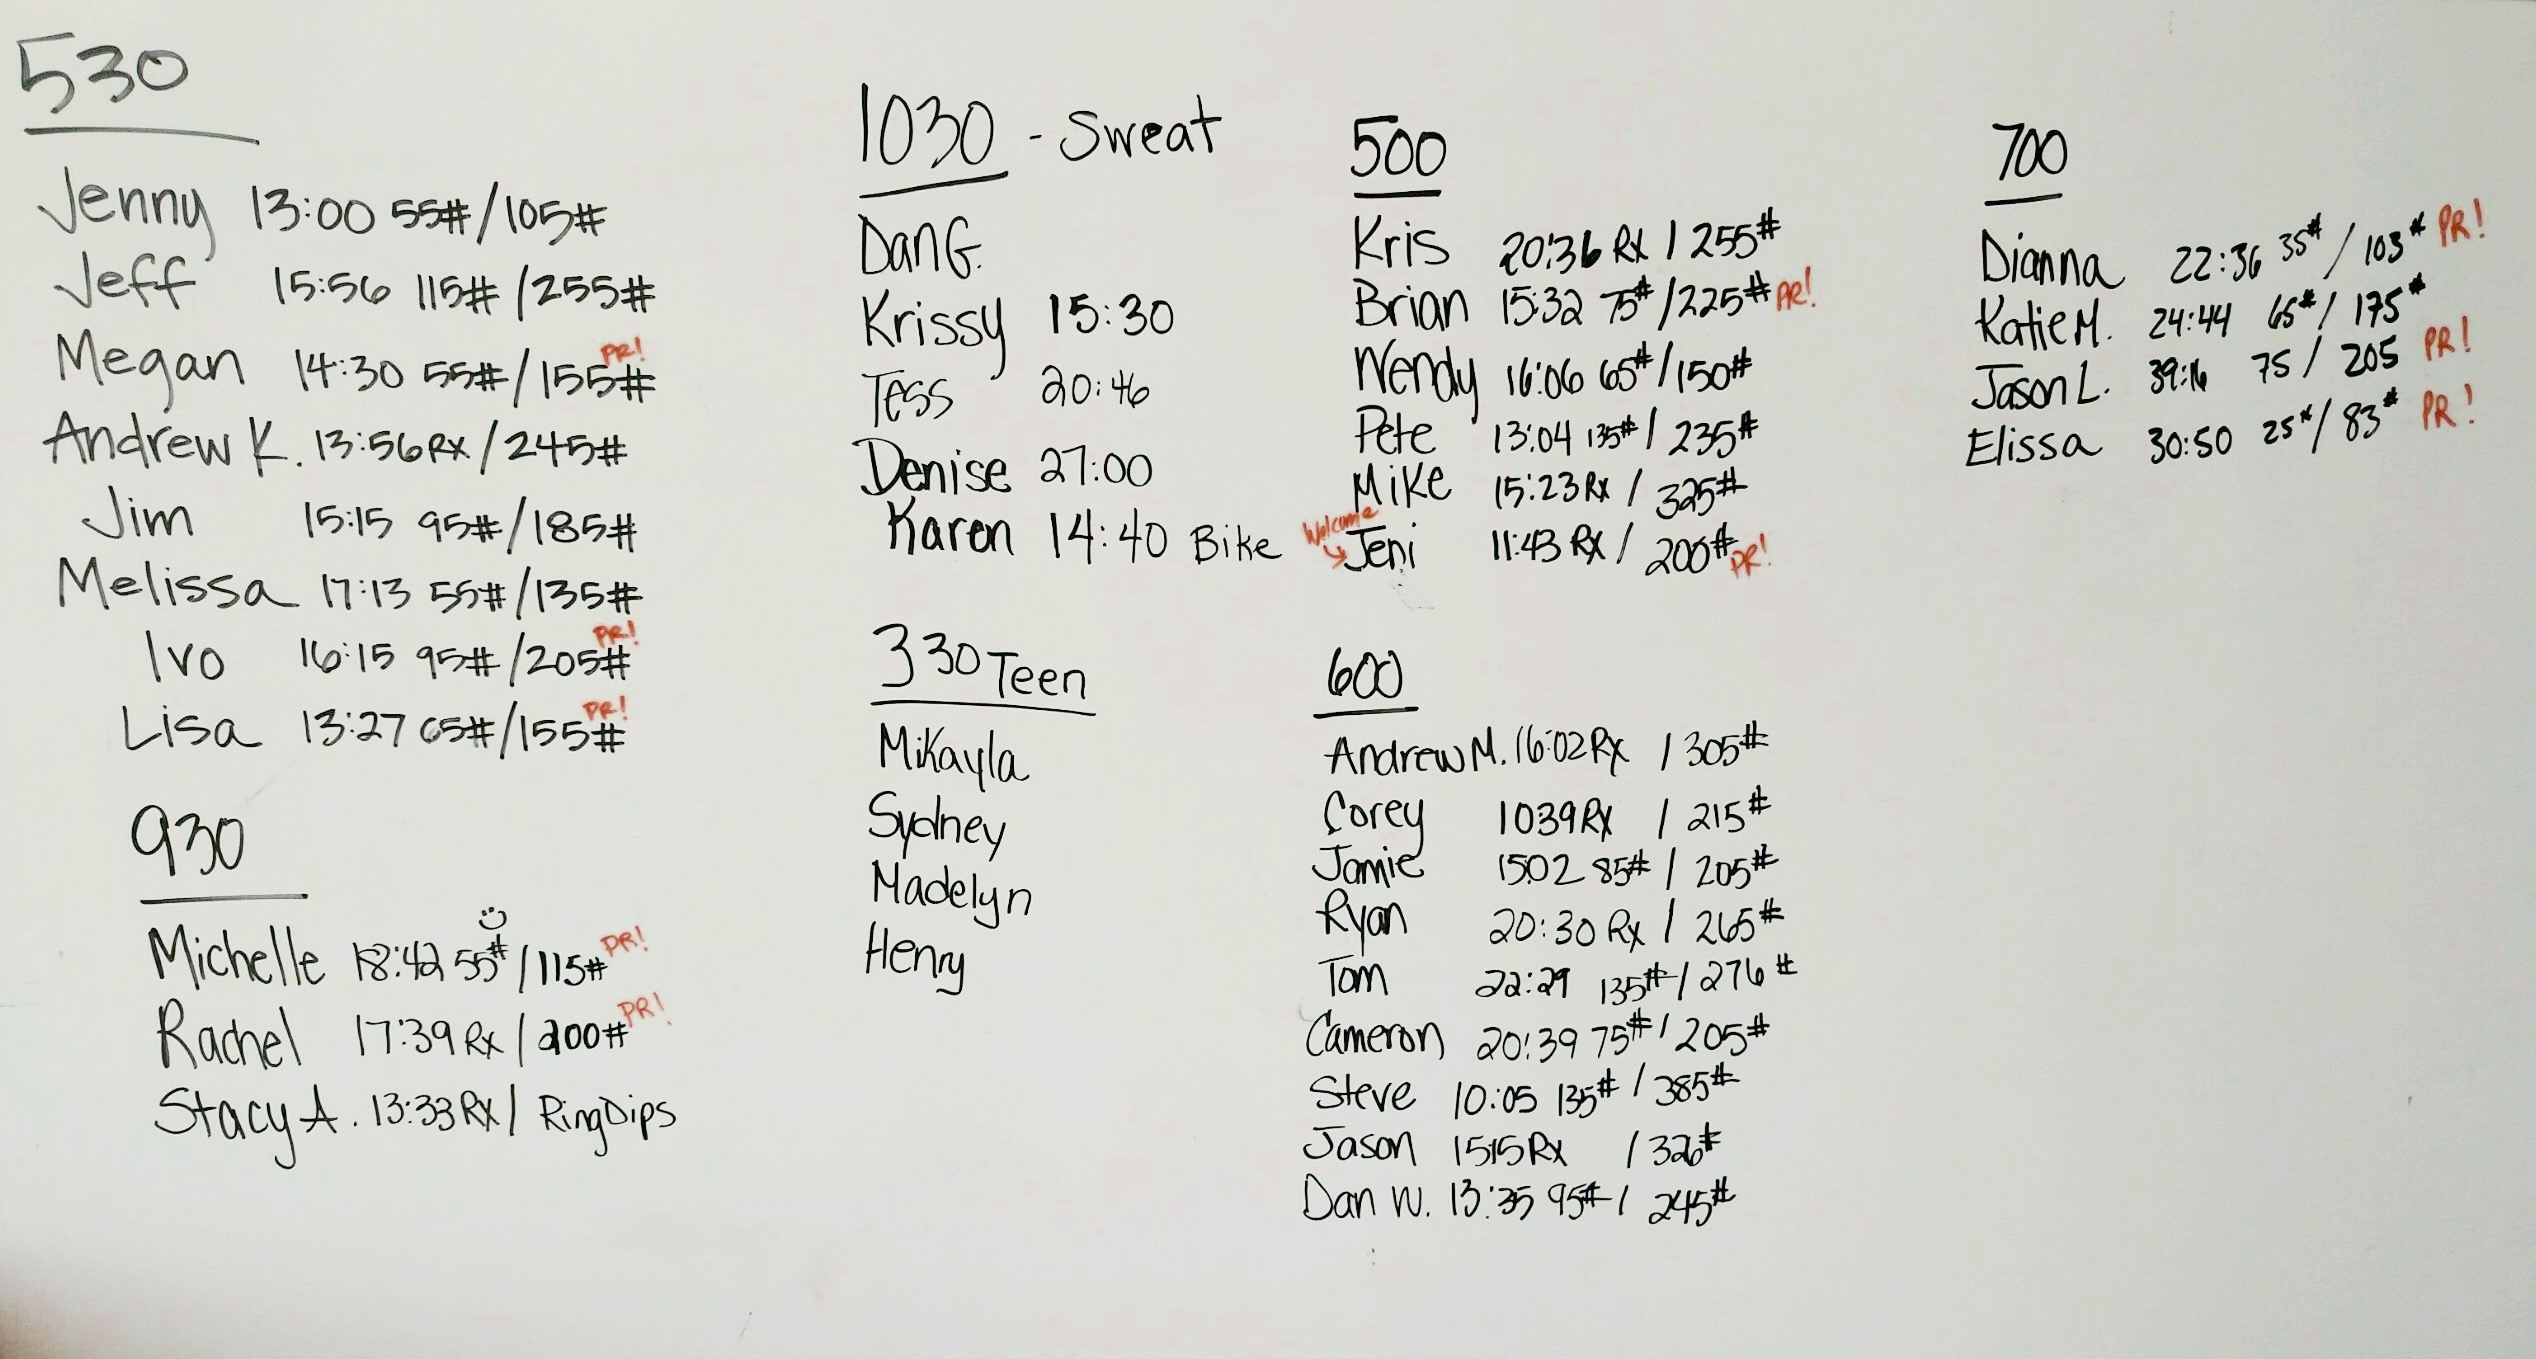 530
Jenny 13:00 55#/105#
Jeff 15:56 115#/255#
Megan 14:30 55#/155# PR!
Andrew K. 13:56 Rx/245#
Jim 15:15 95#/185#
Melissa 17:13 55#/135#
Ivo 16:15 95#/205# PR!
Lisa 13:27 65#/155# PR!
930
Michelle 18:42 55#/115# PR!
Rachel 17:39 Rx/200# PR!
Stacy A. 13:33 Rx/ Ring Dips
1030 - Sweat
Dan G.
Krissy 15:30
Tess 20:46
Denise 27:00
Karen 14:40 Bike
330 Teen
Mikayla
Sydney
Madelyn
Henry
500
Kris 20:36 Rx / 255#
Brian 15:32 75#/225# PR!
Wendy 16:06 65#/150#
Pete 13:04 135#/ 235#
Mike 15:23 Rx / 325#
Welcome
Jeni 11:43 Rx / 200# PR!
600
Andrew M. 16:02 Rx / 305#
Corey 1039 Rx / 215#
Jamie 1502 85# / 205#
Ryan 20:30 Rx / 265#
Tom 22:29 135# / 276#
Cameron 20:39 75# / 205#
Steve 10:05 135# / 385#
Jason 1515 Rx / 326#
Dan W. 13:35 95# / 245#
700
Dianna 22:36 35# / 103# PR!
Katie M. 24:44 65# / 175#
Jason L. 39:16 75 / 205 PR!
Elissa 30:50 25# / 83# PR!